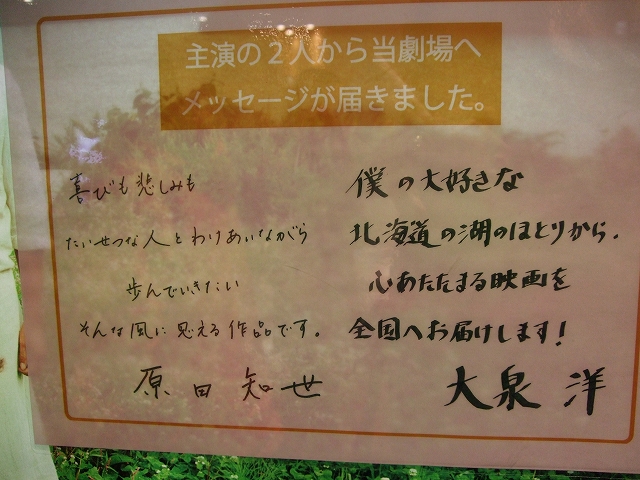 主演の2人から当劇場へ
メッセージが届きました。
喜びも悲しみも
たいせつな人とわけあいながら
歩んでいきたい
そんな風に思える作品です。
原田知世
僕の大好きな
北海道の湖のほとりから、
心あたたまる映画を
全国へお届けします!
大泉洋